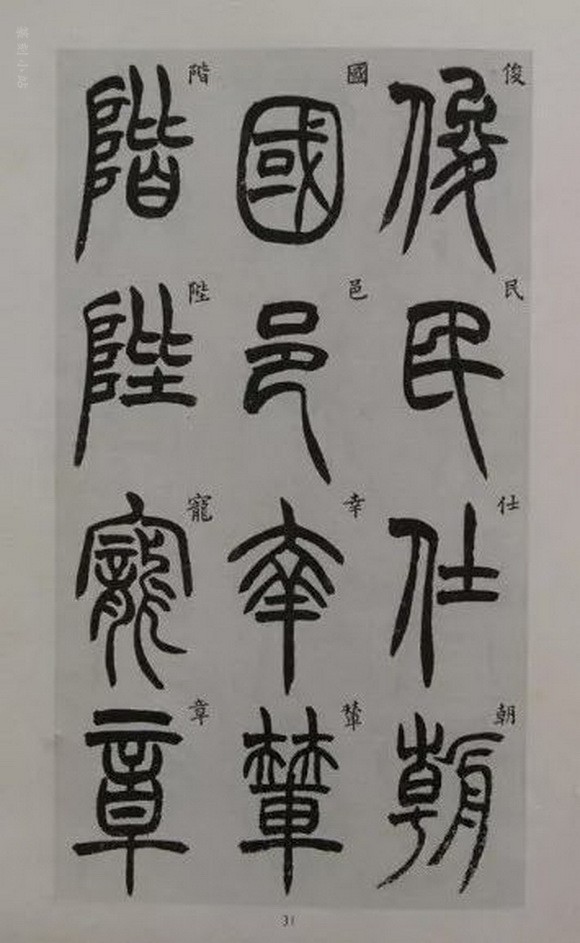 俊民仕朝
國邑幸輦
階陛寵章
31